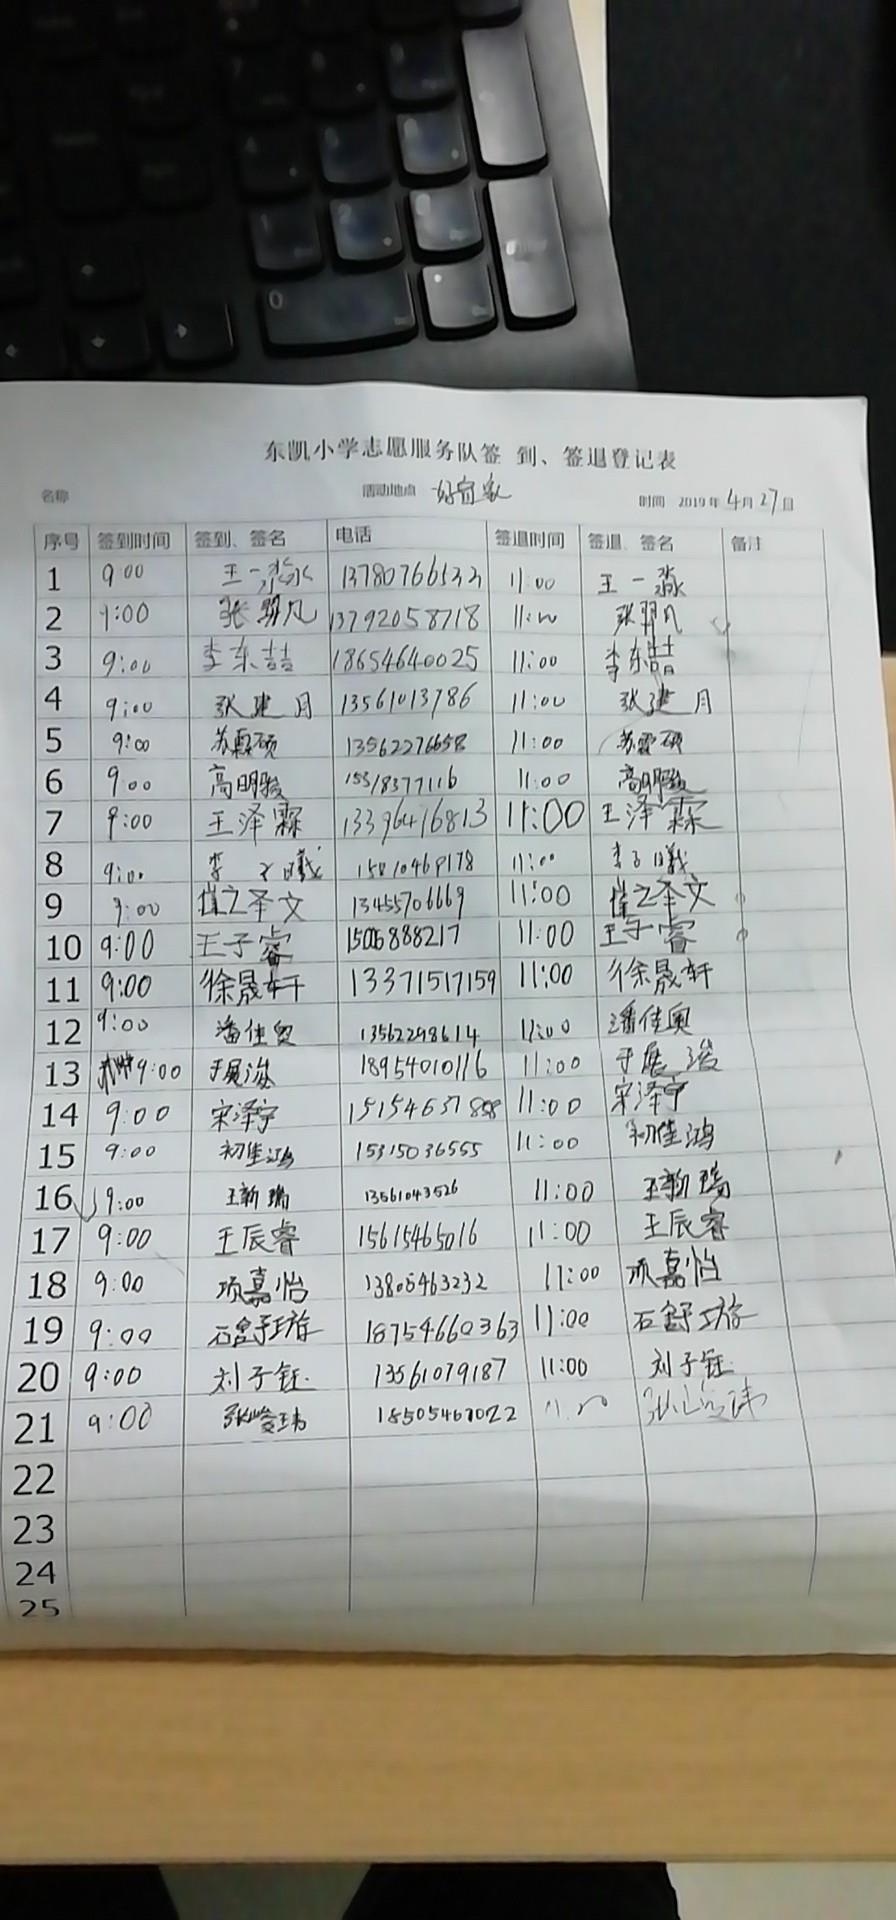 0
东凯小学志愿服务队签 到、签退登记表
名称 活动地点 好宜家 时间 2019年4月27日
序号 签到时间 签到、签名 电话 签退时间 签退、签名 备注
1 9:00 王一淼 11:00 王一淼
2 9:00 张羿凡 13792058718 11:00 张羿凡
3 9:00 李东喆 18654640025 11:00 李东喆
4 9:00 张建月 13561013786 11:00 张建月
5 9:00 苏霈硕 13562276658 11:00 苏霈硕
6 9:00 高明骏 15318377116 11:00 高明骏
7 9:00 王泽霖 13396416813 11:00 王泽霖
8 9:00 李子曦 11:00 李子曦
9 9:00 崔之圣文 13455706669 11:00 崔之圣文
10 9:00 王子睿 1506888217 11:00 王子睿
11 9:00 徐晟轩 13371517159 11:00 徐晟轩
12 9:00 潘佳奥 13562298614 11:00 潘佳奥
13 9:00 于展浚 18954010116 11:00 于展浚
14 9:00 宋泽宇 11:00 宋泽宇
15 9:00 初佳鸿 15315036555 11:00 初佳鸿
16 9:00 王新瑞 13561043526 11:00 王新瑞
17 9:00 王辰睿 15615465016 11:00 王辰睿
18 9:00 项嘉怡 13805463232 11:00 项嘉怡
19 9:00 石舒 18754660363 11:00 石舒
20 9:00 刘子钰 13561079187 11:00 刘子钰
21 9:00 张峻玮 18505467022 11:00 张峻玮
22
23
24
25